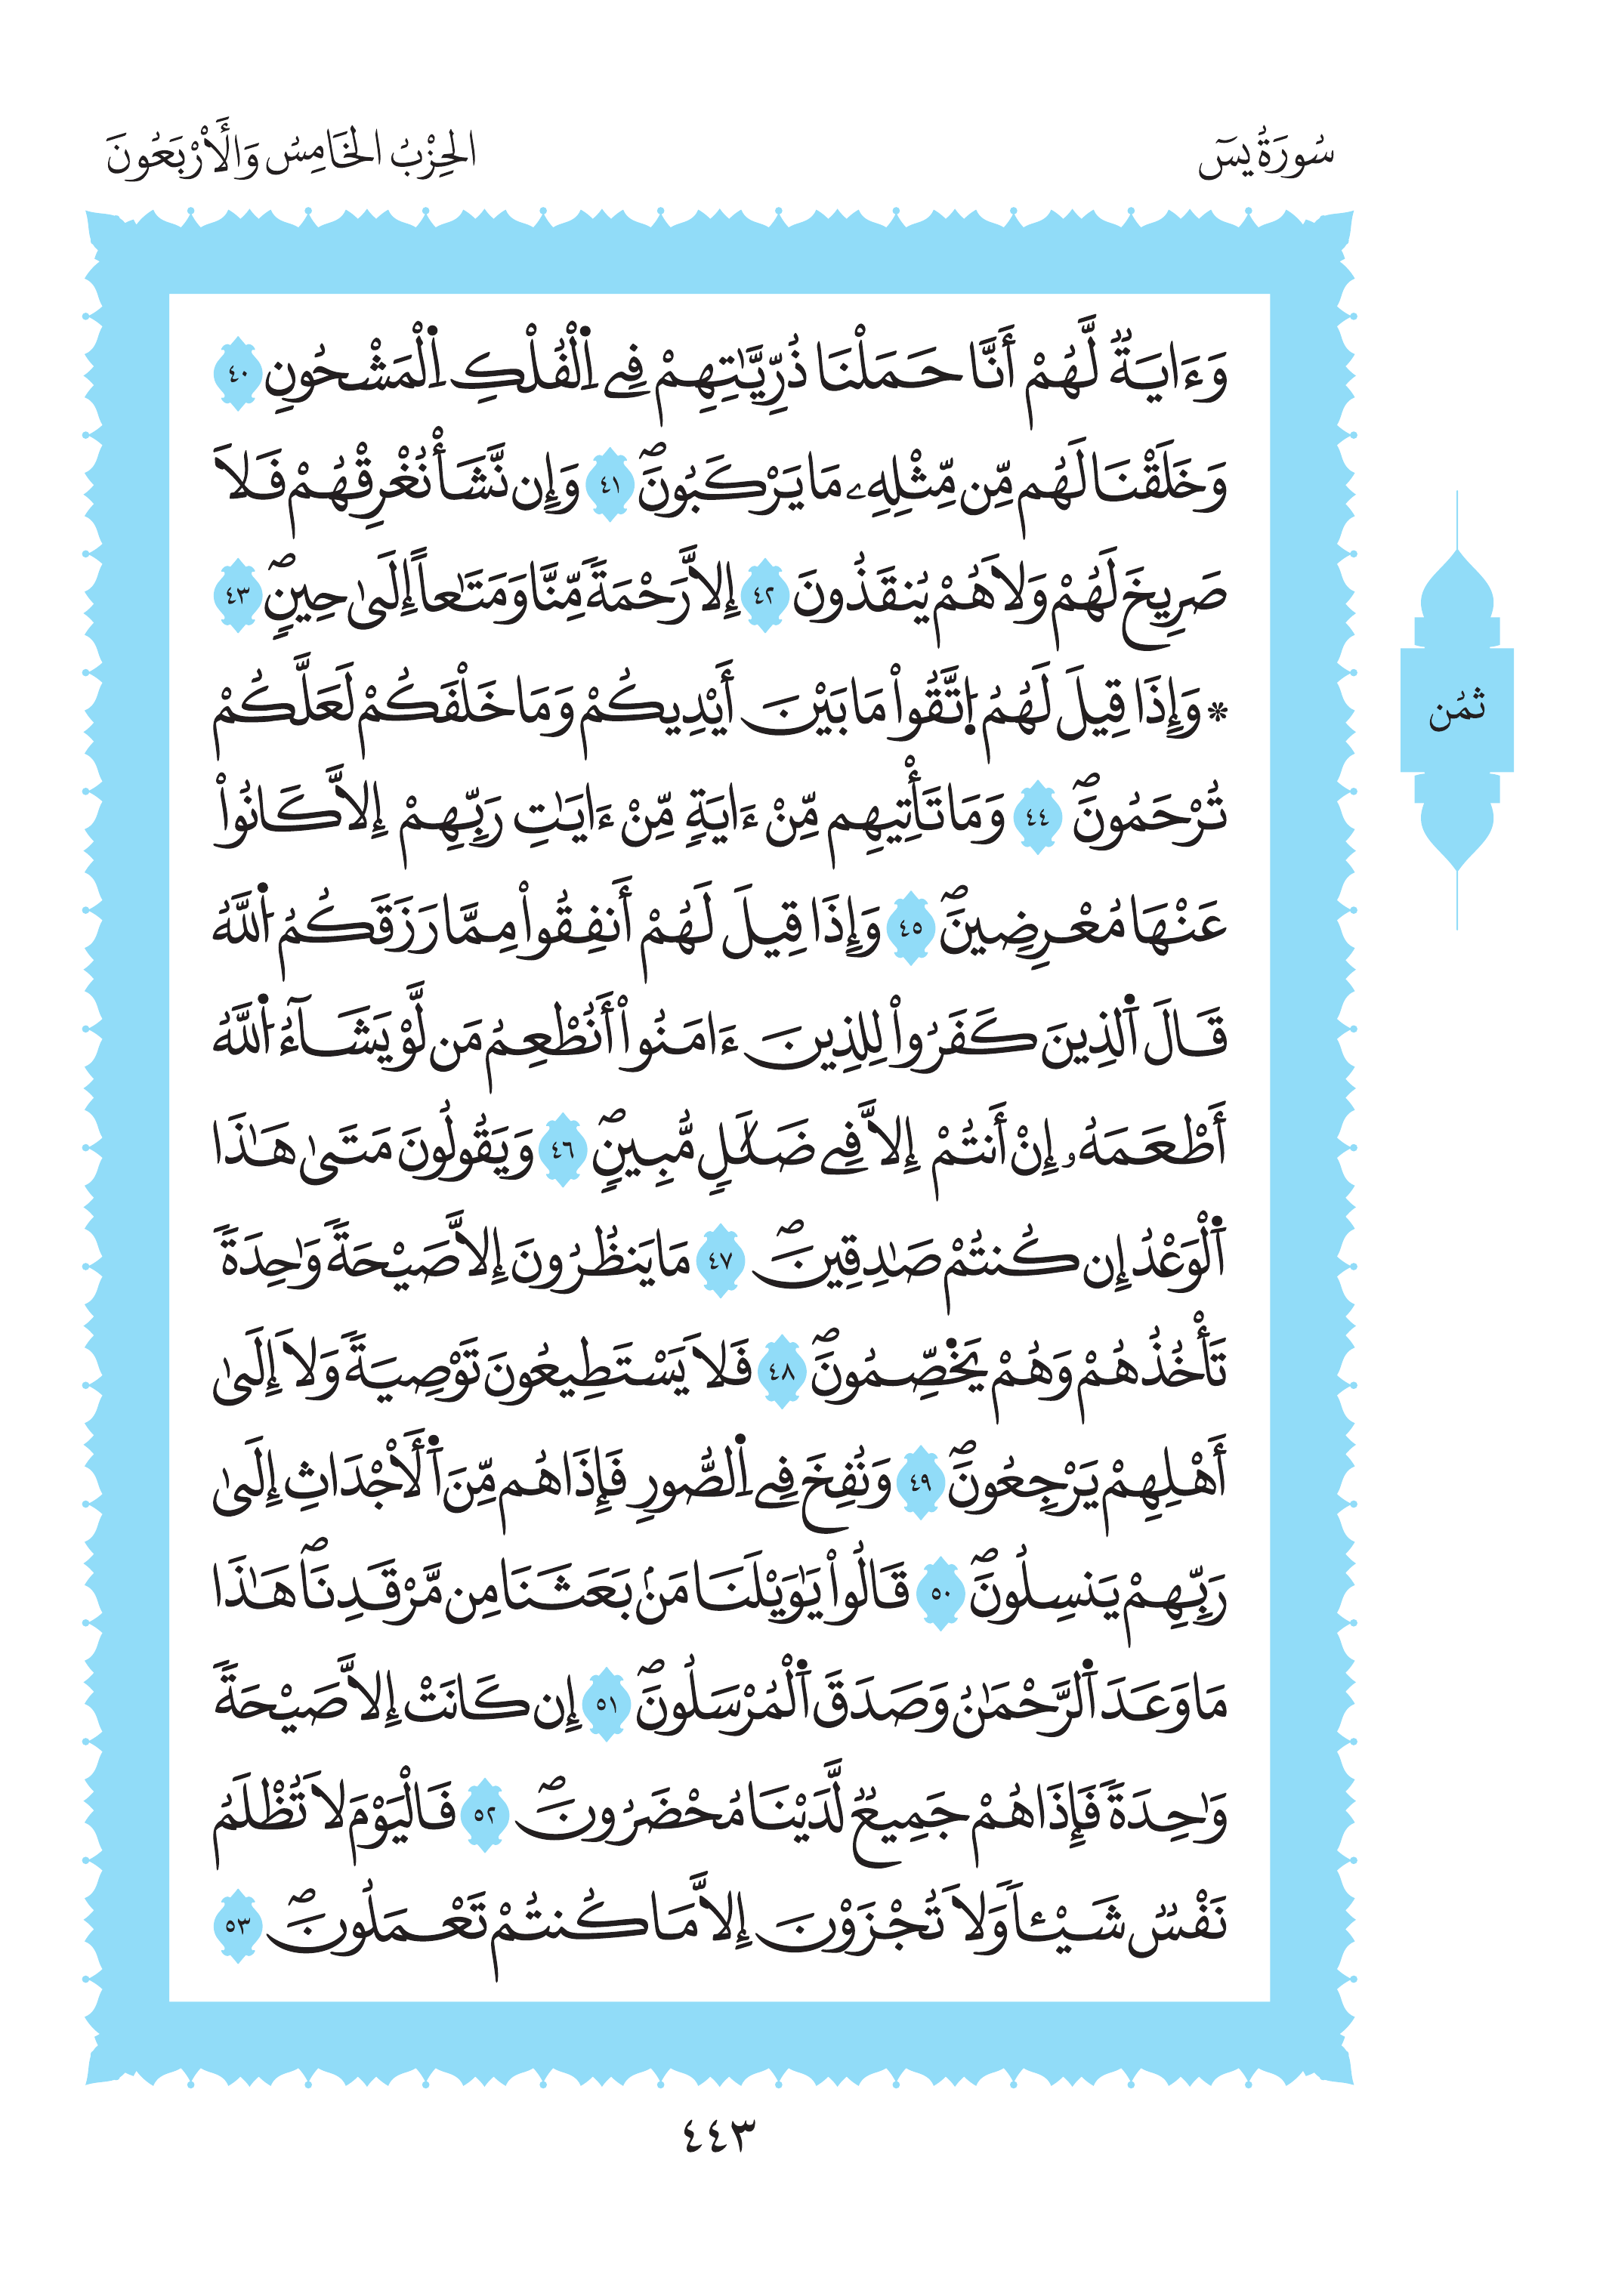 سُورَةُ يسٓ
الحِزْبُ الخَامِسُ وَالأَرْبَعُونَ
وَءَايَةٌ لَّهُمْ أَنَّا حَمَلْنَا ذُرِّيَّٰتِهِمْ فِے اِ۬لْفُلْكِ اِ۬لْمَشْحُونِ ٤٠
وَخَلَقْنَا لَهُم مِّن مِّثْلِهِۦ مَا يَرْكَبُونَۖ ٤١ وَإِن نَّشَأْ نُغْرِقْهُمْ فَلَا
صَرِيخَ لَهُمْ وَلَا هُمْ يُنقَذُونَ ٤٢ إِلَّا رَحْمَةٗ مِّنَّا وَمَتَٰعاً إِلَىٰ حِينٖۖ ٤٣
* وَإِذَا قِيلَ لَهُمُ اُ۪تَّقُواْ مَا بَيْنَ أَيْدِيكُمْ وَمَا خَلْفَكُمْ لَعَلَّكُمْ
تُرْحَمُونَۖ ٤٤ وَمَا تَأْتِيهِم مِّنْ ءَايَةٖ مِّنْ ءَايَٰتِ رَبِّهِمْ إِلَّا كَانُواْ
عَنْهَا مُعْرِضِينَۖ ٤٥ وَإِذَا قِيلَ لَهُمْ أَنفِقُواْ مِمَّا رَزَقَكُمُ اُ۬للَّهُ
قَالَ اَ۬لذِينَ كَفَرُواْ لِلذِينَ ءَامَنُواْ أَنُطْعِمُ مَن لَّوْ يَشَآءُ اُ۬للَّهُ
أَطْعَمَهُۥ إِنْ أَنتُمْ إِلَّا فِے ضَلَٰلٖ مُّبِينٖۖ ٤٦ وَيَقُولُونَ مَتَىٰ هَٰذَا
اَ۬لْوَعْدُ إِن كُنتُمْ صَٰدِقِينَۖ ٤٧ مَا يَنظُرُونَ إِلَّا صَيْحَةٗ وَٰحِدَةٗ
تَأْخُذُهُمْ وَهُمْ يَخْصِّمُونَۖ ٤٨ فَلَا يَسْتَطِيعُونَ تَوْصِيَةٗ وَلَا إِلَىٰ
أَهْلِهِمْ يَرْجِعُونَۖ ٤٩ وَنُفِخَ فِے اِ۬لصُّورِ فَإِذَا هُم مِّنَ اَ۬لْأَجْدَاثِ إِلَىٰ
رَبِّهِمْ يَنسِلُونَۖ ٥٠ قَالُواْ يَٰوَيْلَنَا مَنۢ بَعَثَنَا مِن مَّرْقَدِنَاۖ هَٰذَا
مَا وَعَدَ اَ۬لرَّحْمَٰنُ وَصَدَقَ اَ۬لْمُرْسَلُونَۖ ٥١ إِن كَانَتْ إِلَّا صَيْحَةٗ
وَٰحِدَةٗ فَإِذَا هُمْ جَمِيعٞ لَّدَيْنَا مُحْضَرُونَۖ ٥٢ فَالْيَوْمَ لَا تُظْلَمُ
نَفْسٞ شَيْـٔاً وَلَا تُجْزَوْنَ إِلَّا مَا كُنتُمْ تَعْمَلُونَۖ ٥٣
ثمُن
٤٤٣